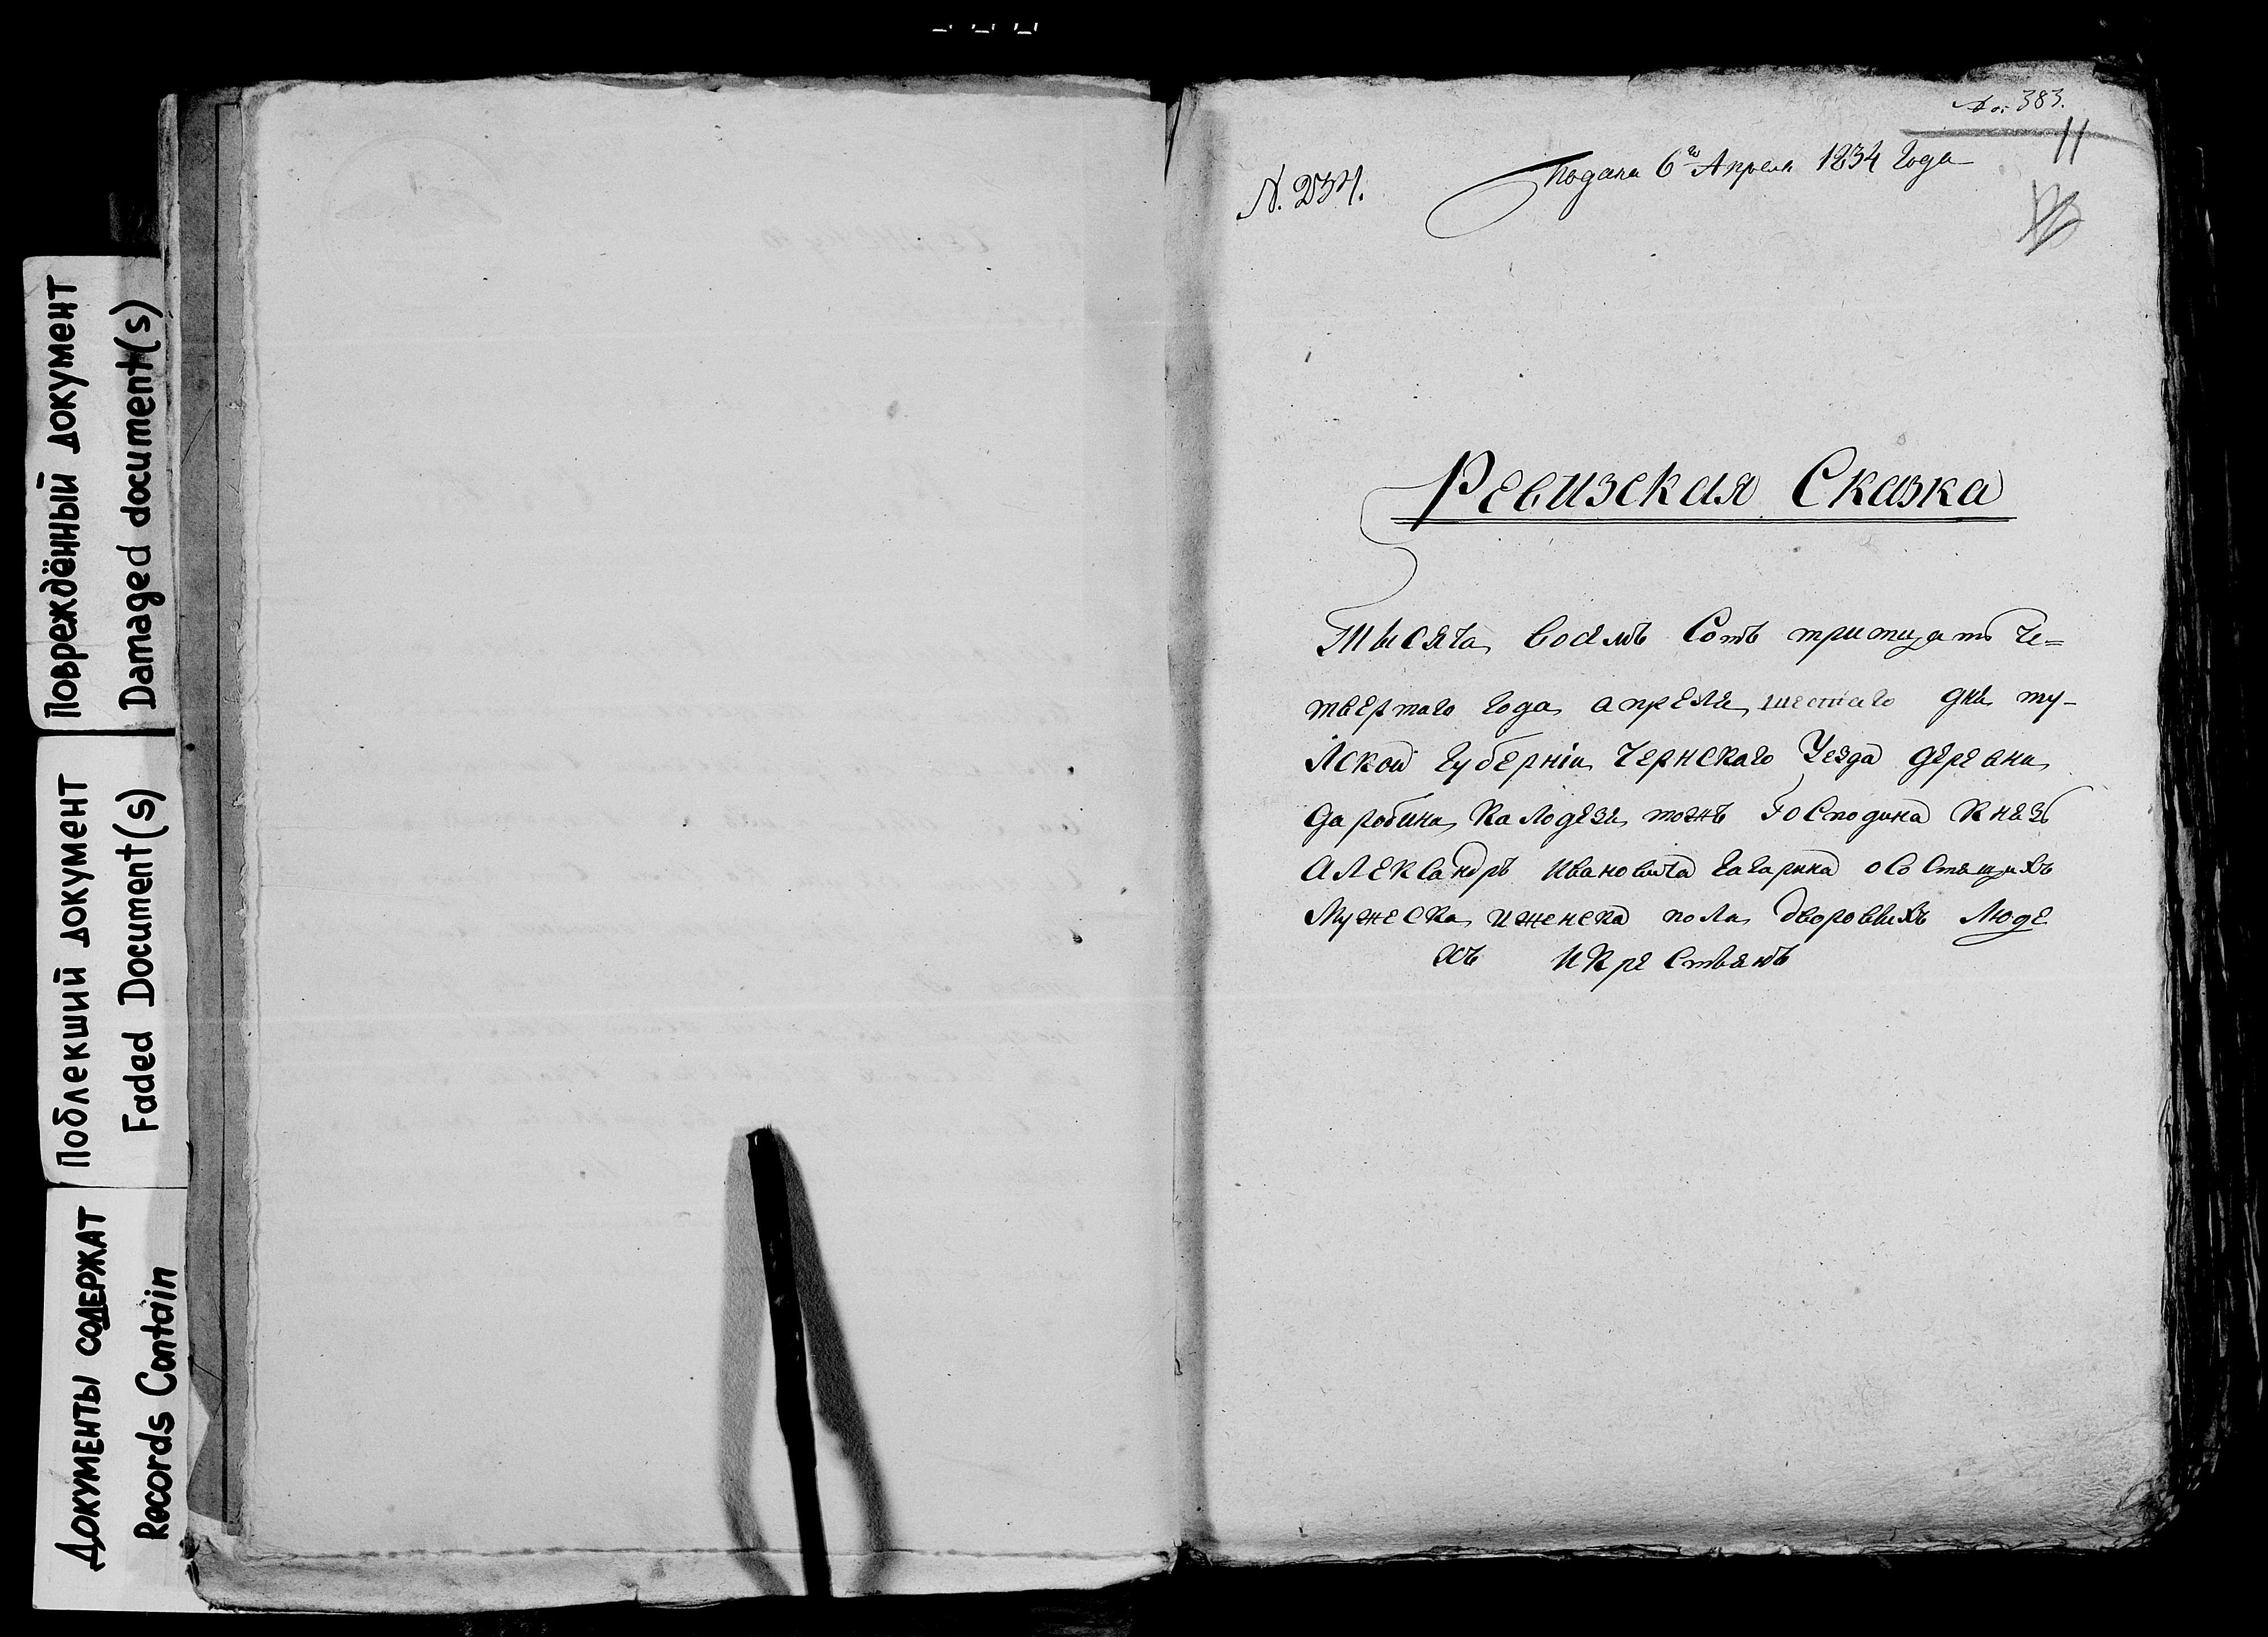 Повреждённый документ
Damaged document(s)
Поблекший документ
Faded Document(s)
Документы содержат
Records Contain
383.
11
N. 234.
Подана 6го Апреля 1834 Года
Ревизская Сказка
Тысяча восемь Сотъ тритцать че=
твертаго года апреля шестаго дня ту-
лской губерніи Чернскаго Уезда деревни
Калодезя тожъ Господина Князь
Александръ Ивановича Гагарина о Состящихъ
Мужеска и женска пола дворовыхъ Люде
хъ и Крестьянъ